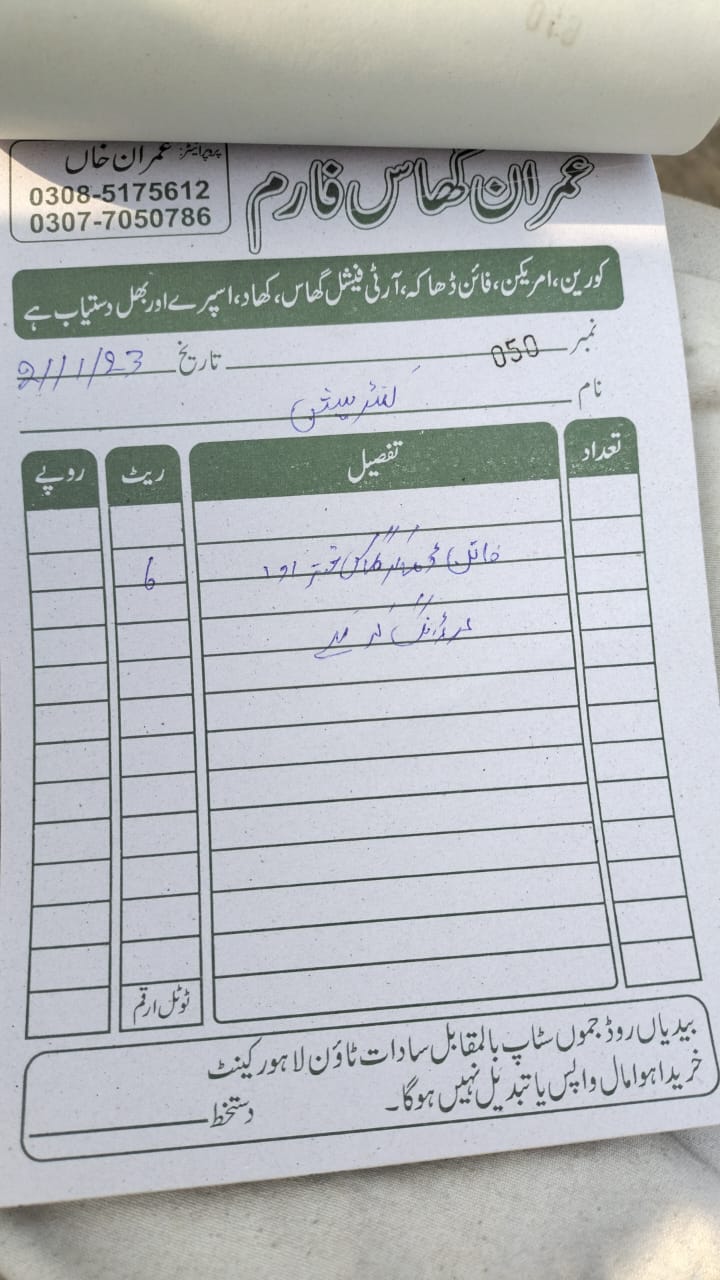 عمران گھاس فارم
پروپرائیٹر: عمران خاں
0308-5175612
0307-7050786
کورین، امریکن، فائن ڈھاکہ، آرٹی فیشل گھاس، کھاد، اسپرے اور بھل دستیاب ہے
نمبر 050 تاریخ 21/1/23
نام
تعداد تفصیل ریٹ روپے
فائن گھاس 6
ٹوٹل ارقم
بیدیاں روڈ جموں سٹاپ بالمقابل سادات ٹاؤن لاہور کینٹ
خریدا ہوا مال واپس یا تبدیل نہیں ہوگا۔
دستخط